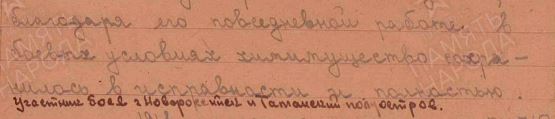 благодаря его повседневной работе в
боевых условиях химимущество сохра-
нилось в исправности и полностью.
Участник боев г. Новоросийск и Таманский полуостров.